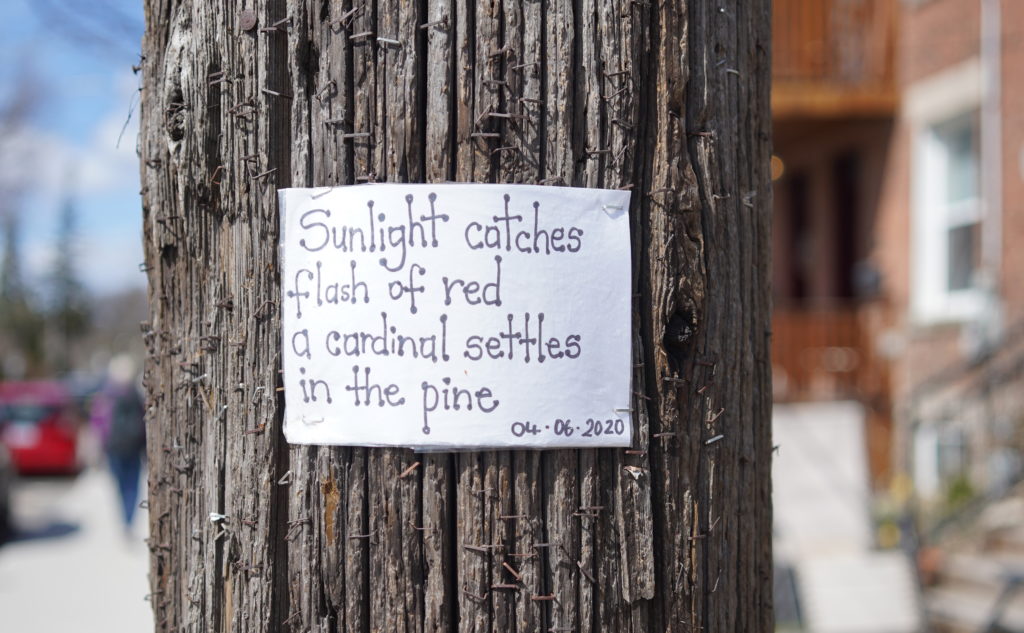 Sunlight catches
flash of red
a cardinal settles
in the pine
04.06.2020